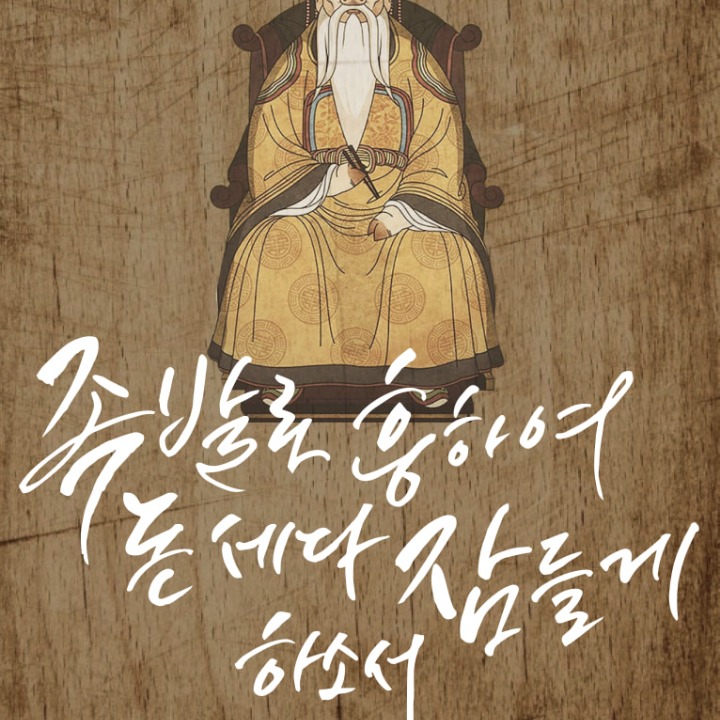 족발로 흥하여
돈 세다 잠들게
하소서